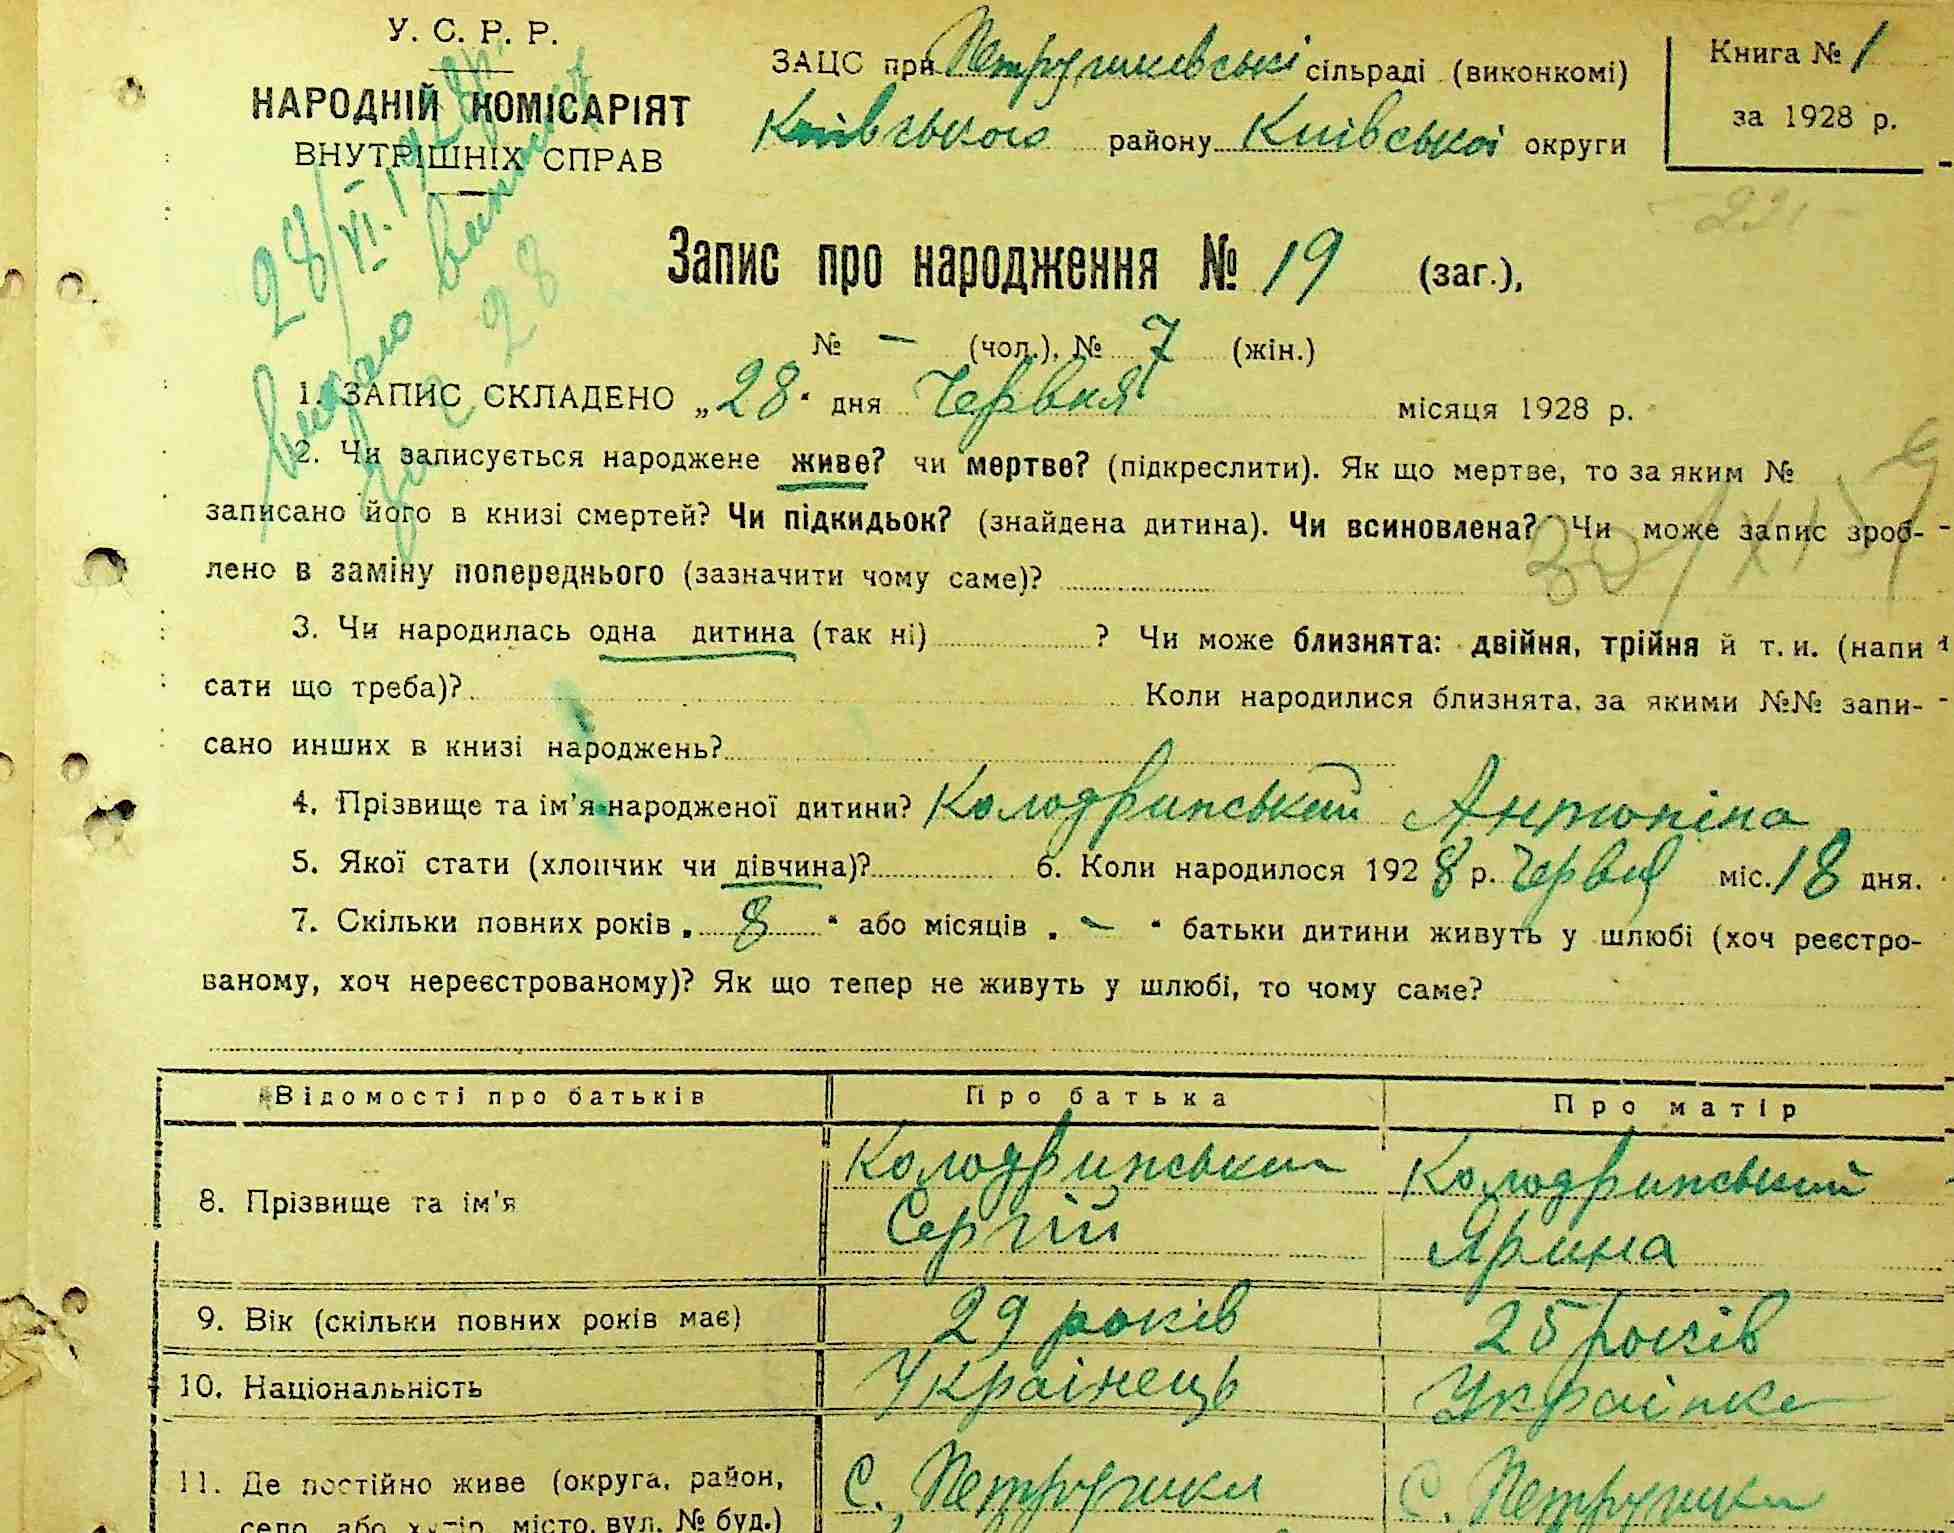 У. С. Р. Р.
НАРОДНІЙ КОМІСАРІЯТ
ВНУТРІШНІХ СПРАВ
ЗАЦС при Петрушківські сільраді (виконкомі)
Київського району Київської округи
Книга № 1
за 1928 р.
28/VI. 1928 р.
Видано виписку
за № 28
- 221 -
Запис про народження № 19 (заг.),
№ — (чол.), № 7 (жін.)
1. ЗАПИС СКЛАДЕНО „28“ дня Червня місяця 1928 р.
2. Чи записується народжене живе? чи мертве? (підкреслити). Як що мертве, то за яким №
записано його в книзі смертей? Чи підкидьок? (знайдена дитина). Чи всиновлена? Чи може запис зроб-
лено в заміну попереднього (зазначити чому саме)?
30/XI 59
3. Чи народилась одна дитина (так ні) ? Чи може близнята: двійня, трійня й т. и. (напи
сати що треба)? Коли народилися близнята, за якими №№ запи-
сано инших в книзі народжень?
4. Прізвище та ім'я народженої дитини? Колодринський Антоніна
5. Якої стати (хлопчик чи дівчина)? 6. Коли народилося 1928 р. Червня міс. 18 дня.
7. Скільки повних років „ 8 “ або місяців „ — “ батьки дитини живуть у шлюбі (хоч реєстро-
ваному, хоч нереєстрованому)? Як що тепер не живуть у шлюбі, то чому саме?
Відомості про батьків Про батька Про матір
8. Прізвище та ім'я Колодринський Сергій Колодринський Ярина
9. Вік (скільки повних років має) 29 років 25 років
10. Національність Українець Українка
11. Де постійно живе (округа, район, с. Петрушки с. Петрушки
село, або хутір, місто, вул. № буд.)